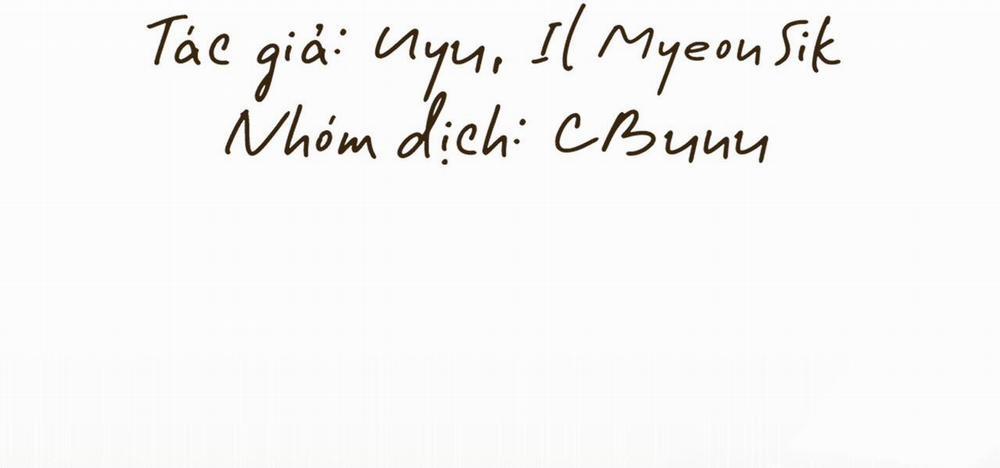 Tác giả: Uyu, Il Myeon Sik
Nhóm dịch: CBunu